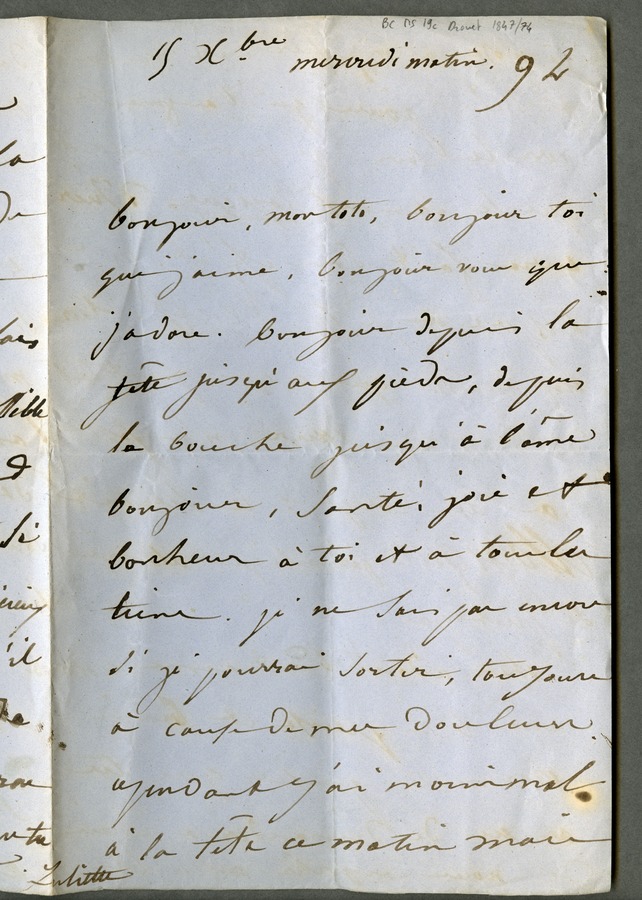 BC MS 19c Drouet 1847/74
15 Xbre mercredi matin. 92
bonjour, mon toto, bonjour toi
que j'aime, bonjour vous que
j'adore. bonjour depuis la
tête jusqu'aux pieds, depuis
la bouche jusqu'à l'âme
bonjour, santé, joie et
bonheur à toi et à tous les
tiens. je ne sais pas encore
si je pourrai sortir, toujours
à cause de mes douleurs.
cependant j'ai moins mal
à la tête ce matin mais
la
de
sible
si
'il
Juliette